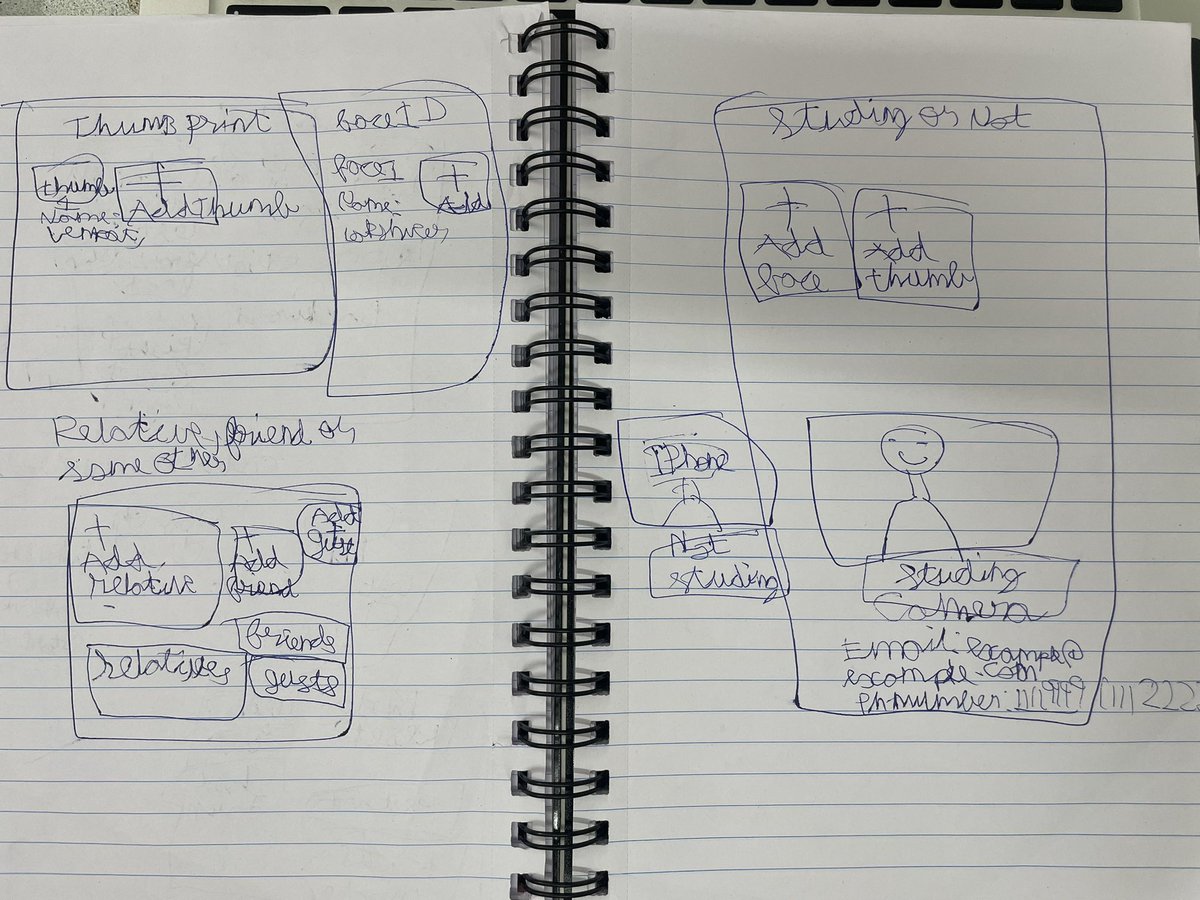 Thumb print
thumb
+
Add Thumb
Name:-
face ID
face 1
+
Add
Name:-
Relative, friend or
some other
+
Add
relative
+
Add
friend
Add
+
gust
relatives
friends
gusts
Studing or Not
+
Add
face
+
Add
thumb
IPhone
Not
studing
studing
Camera
Email: example@
example.com